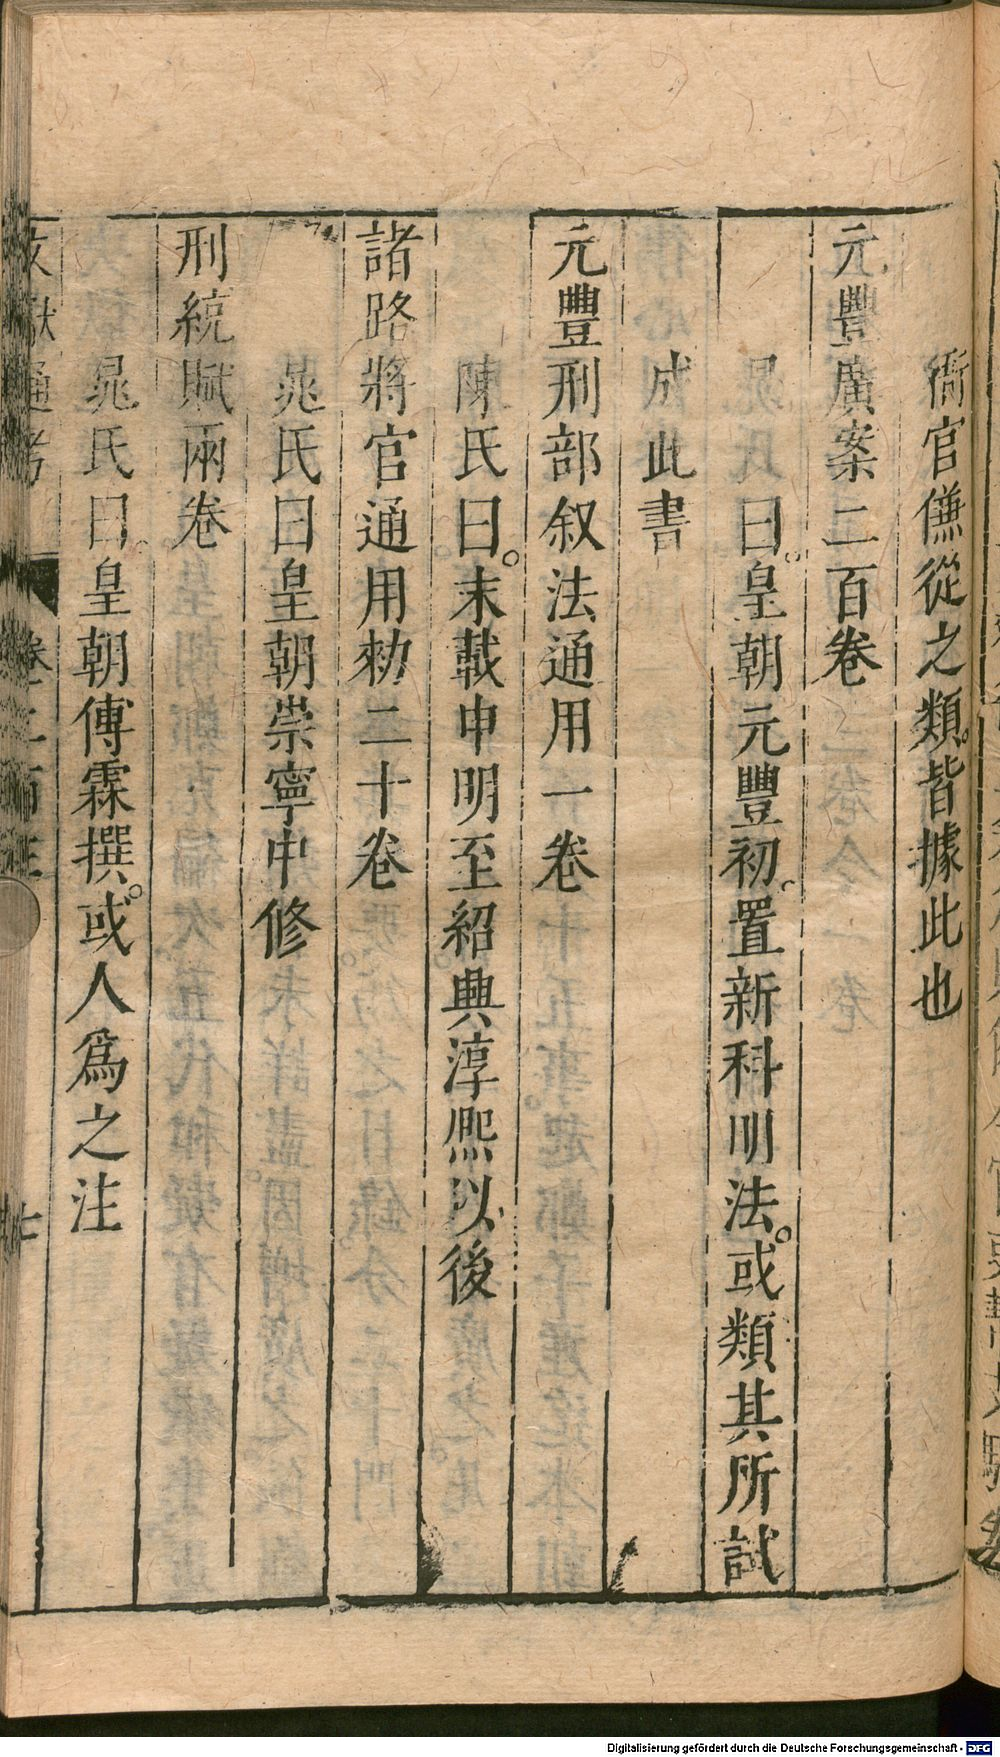 衙官傔從之類。皆據此也
元豐廣案二百卷
晁氏曰。皇朝元豐初。置新科明法。或類其所試
成此書
元豐刑部叙法通用一卷
陳氏曰。末載申明至紹興淳熙以後
諸路將官通用勑二十卷
晁氏曰皇朝崇寧中修
刑統賦兩卷
晁氏曰。皇朝傅霖撰。或人爲之注
文獻通考 卷二百三
Digitalisierung gefördert durch die Deutsche Forschungsgemeinschaft - DFG